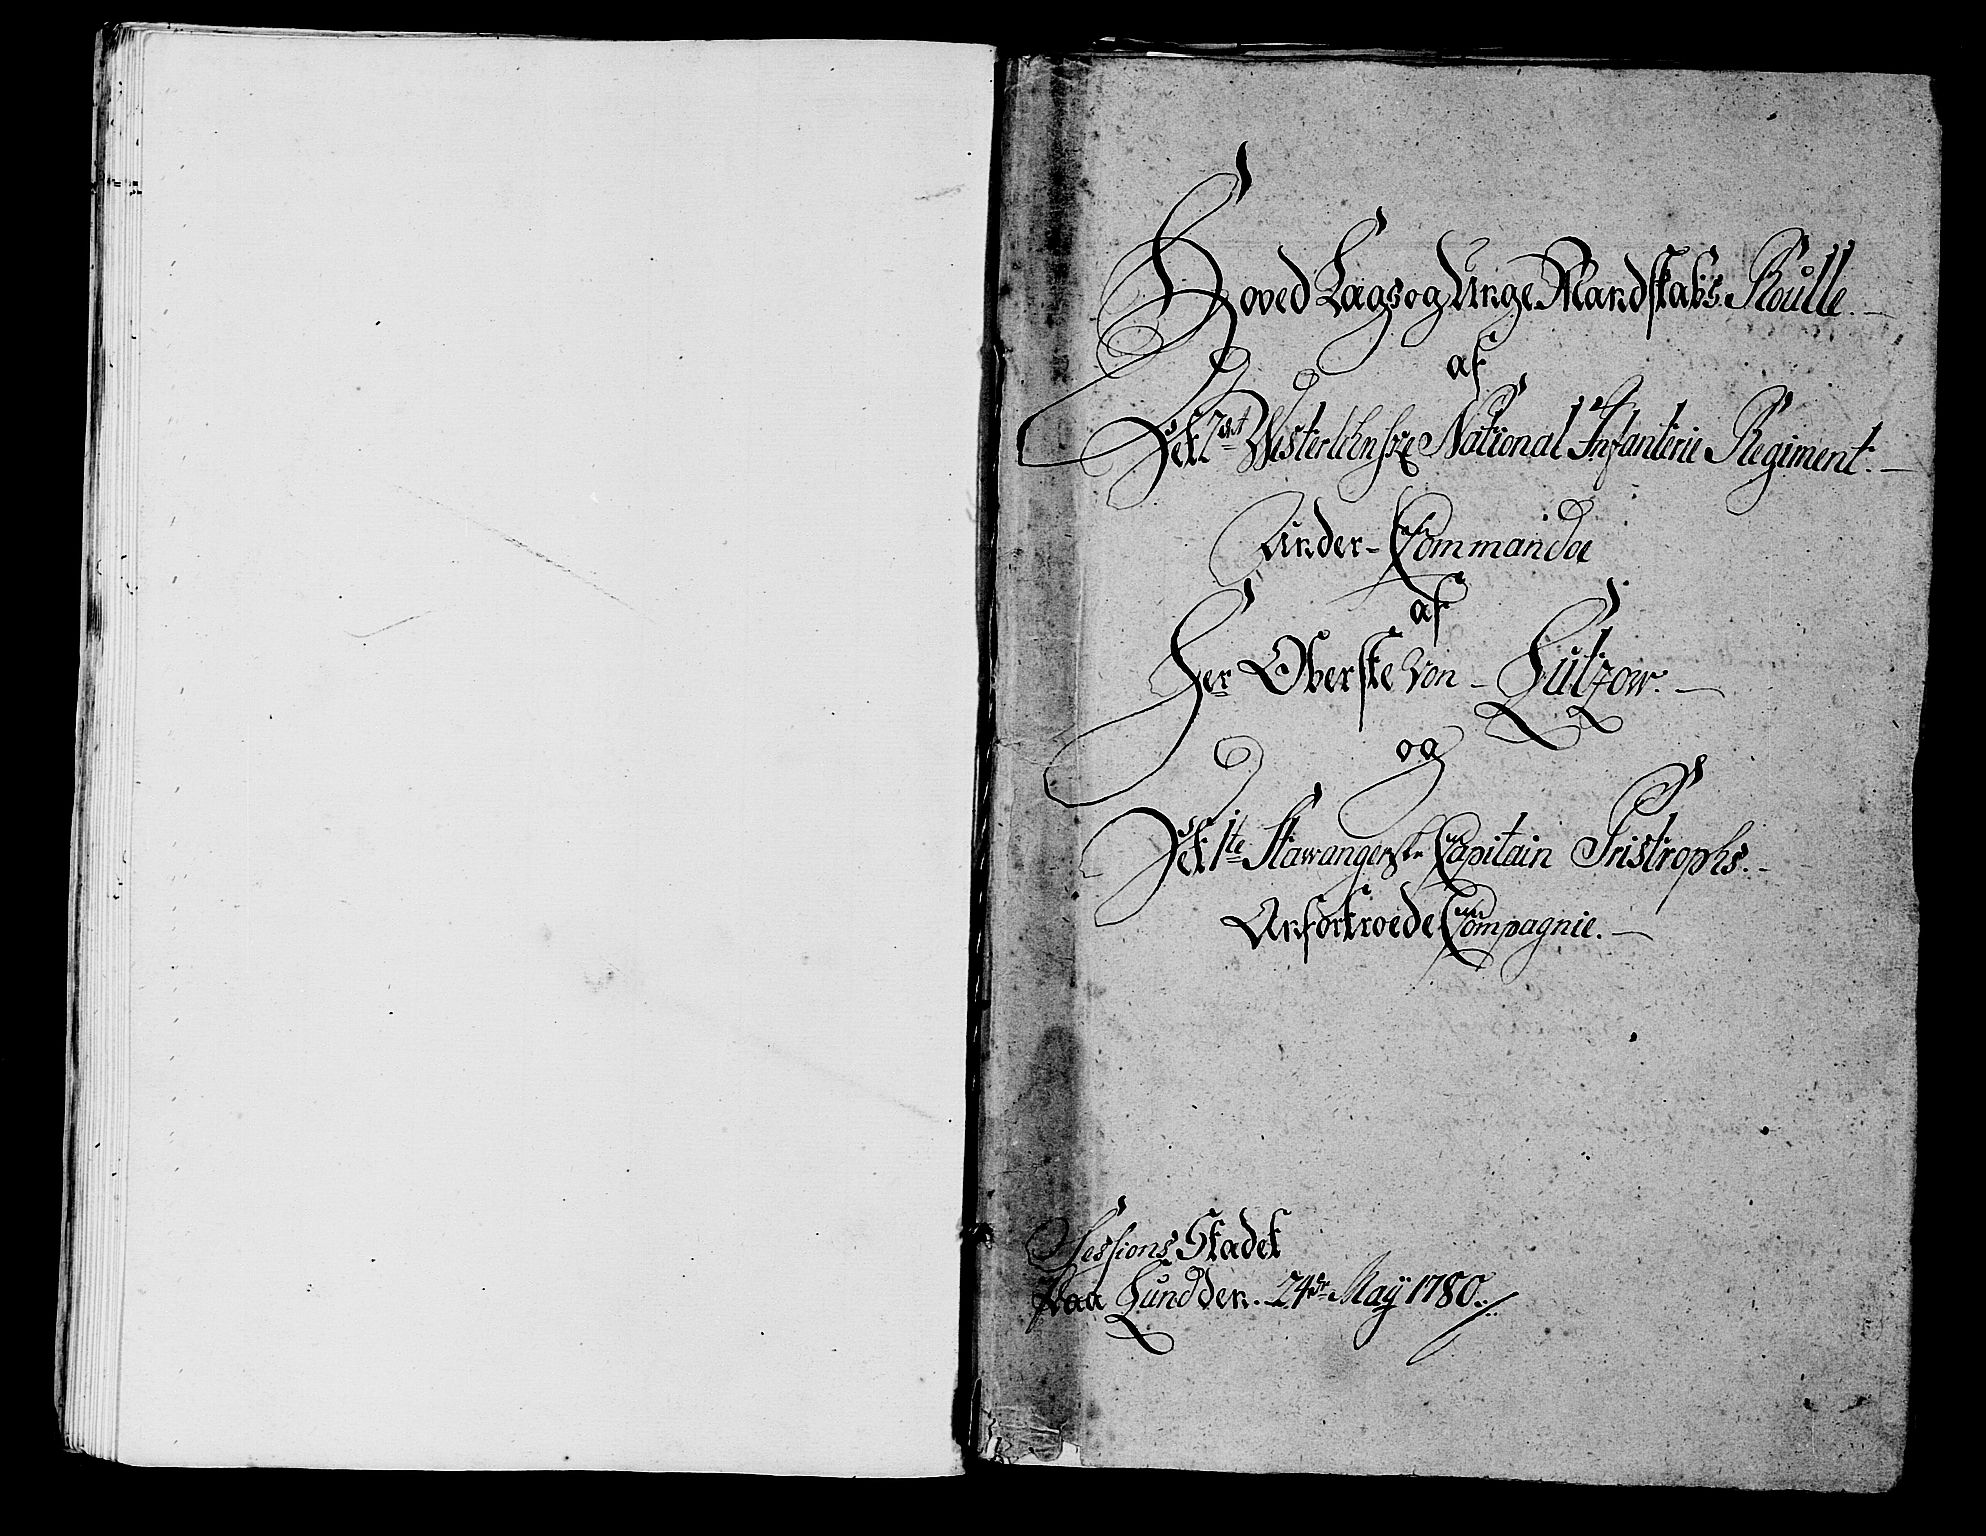 Hoved Lags og Unge Mandskabs Roulle.
af
Det 2det Westerlehnske National Infanterie Regiment.
Under-Commando
af
Her Oberste von Lützow.
og
Det 1te Stawangerske Capitain Tristrophs.
Anfortroede Compagnie.
Sessions Stædet
Paa Lund den. 24de Maÿ 1780.